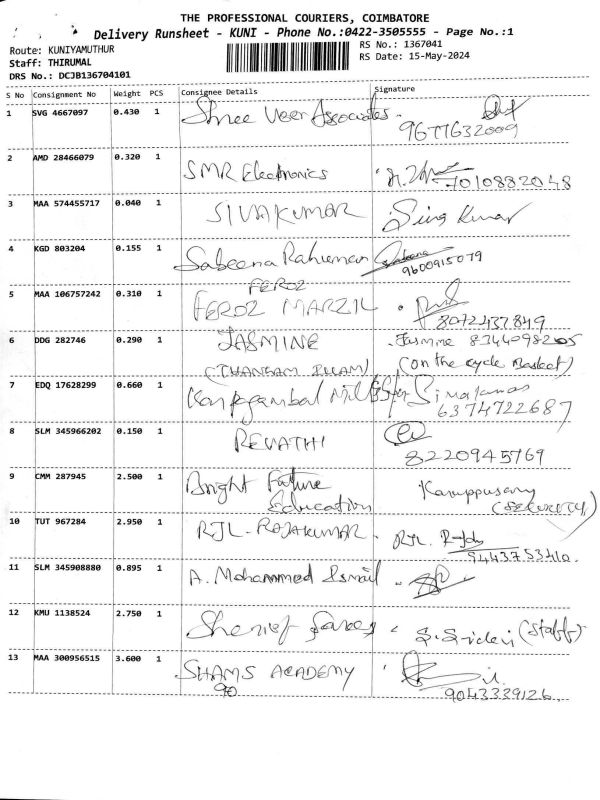 THE PROFESSIONAL COURIERS, COIMBATORE
Delivery Runsheet - KUNI - Phone No.:0422-3505555 - Page No.:1
Route: KUNIYAMUTHUR
RS No.: 1367041
Staff: THIRUMAL
RS Date: 15-May-2024
DRS No.: DCJB136704101
S No Consignment No Weight PCS Consignee Details Signature
1 SVG 4667097 0.430 1 Shree Veer Associates.
9677632009
2 AMD 28466079 0.320 1 SMR Electronics
7010882048
3 MAA 574455717 0.040 1 SIVAKUMAR Siva Kumar
4 KGD 803204 0.155 1 Sabeena Rahuman Sabeena
9600915079
FEROZ
5 MAA 106757242 0.310 1 FEROZ MARZIL
8072437849
6 DDG 282746 0.290 1 JASMINE Jasmine 8344098205
(THANGAM ILLAM) (on the cycle Basket)
7 EDQ 17628299 0.660 1 Karpgambal Mill
6374722687
8 SLM 345966202 0.150 1 REVATHI
8220945769
9 CMM 287945 2.500 1 Bright Future Karuppusamy
Education (SECURITY)
10 TUT 967284 2.950 1 RJL-RAJAKUMAR RJL
9443753410
11 SLM 345908880 0.895 1 A. Mohammed Ismail
12 KMU 1138524 2.750 1 Sherief S. Sridevi (Staff)
13 MAA 300956515 3.600 1 SHAMS ACADEMY
90 9043339126